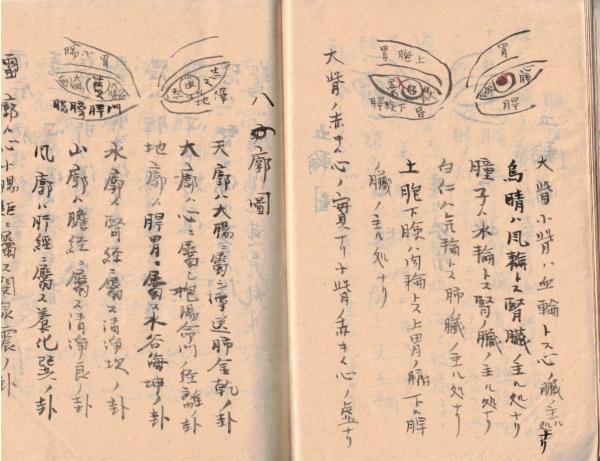 大眥小眥ハ血輪トス心ノ臓ノ主ル処ナリ
烏睛ハ風輪トス腎臓ノ主ル処ナリ
瞳子ハ水輪トス腎ノ臓ノ主ル処ナリ
白仁ハ気輪トス肺ノ臓ノ主ル処ナリ
上胞下瞼ハ肉輪トス上胃ノ腑下ハ脾
ノ臓ノ主ル処ナリ
大眥ノ赤キハ心ノ實ナリ小眥ノ赤キハ心ノ虚ナリ
八廓圖
天廓ハ大腸ニ屬ス傳送肺金乾ノ卦
火廓ハ心ニ屬ス抱陽命門ノ経離ノ卦
地廓ハ脾胃ニ屬ス水谷海坤ノ卦
水廓ハ腎経ニ屬ス清浄坎ノ卦
山廓ハ膽経ニ屬ス清浄艮ノ卦
風廓ハ肝経ニ屬ス養化巽ノ卦
雷廓ハ心小腸経ニ屬ス関泉震ノ卦